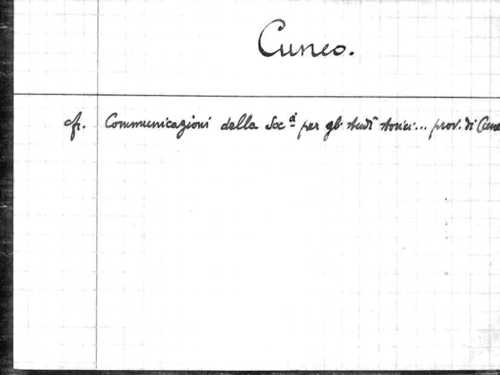 Cuneo.
cfr. Communicazioni della Soc.à per gli studî storici... prov. di Cuneo